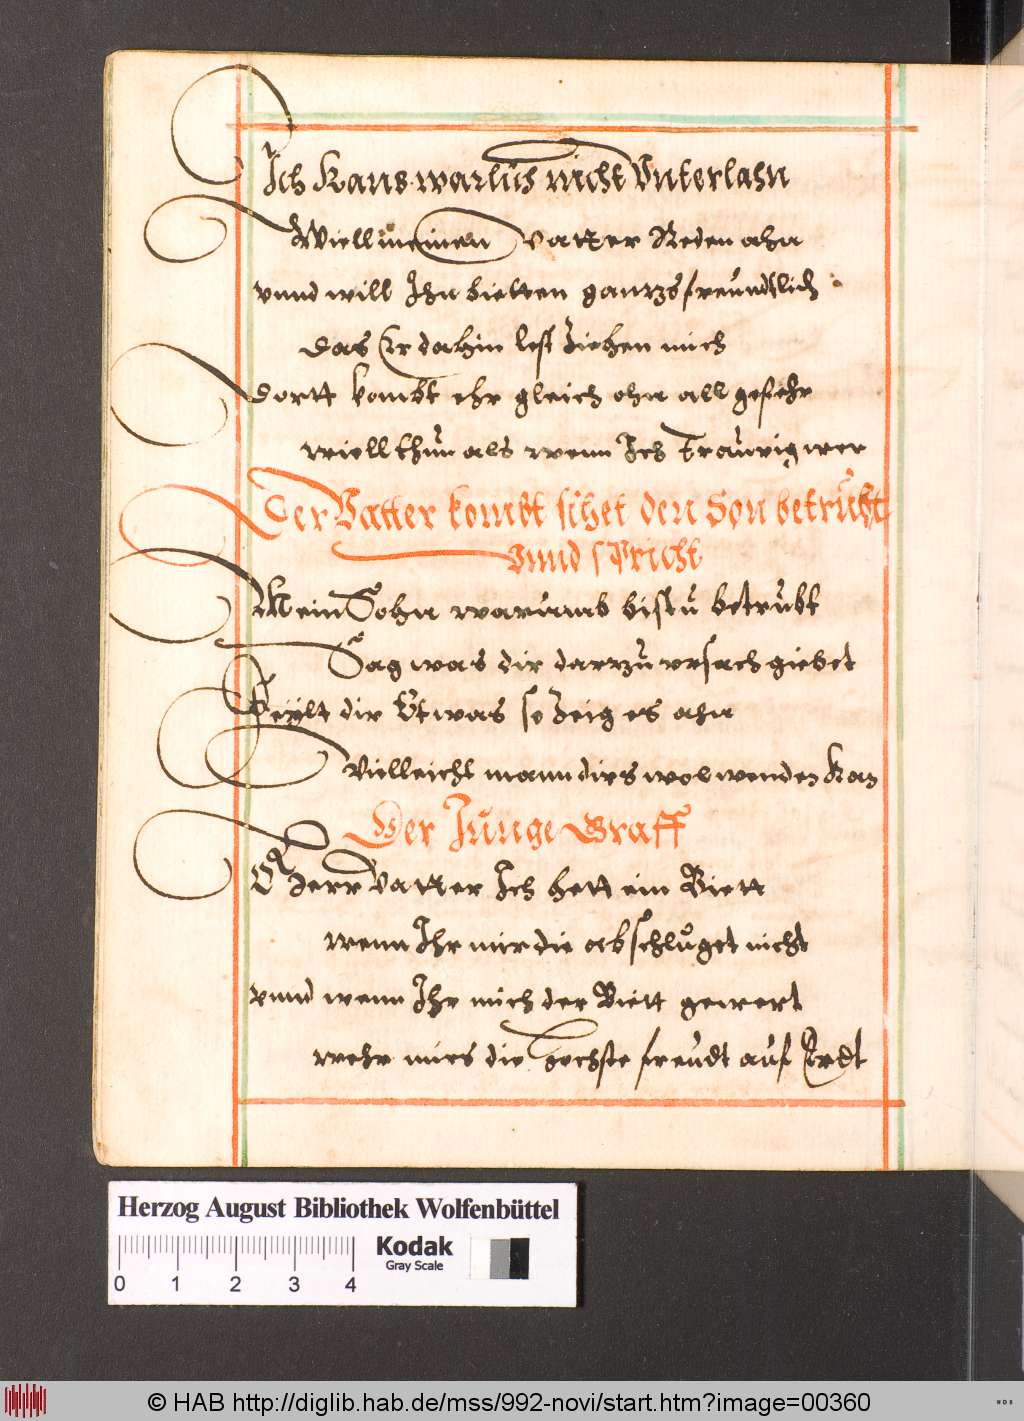 Ich Kans warlich nicht Vnterlahn
Wiell meinen Vatter Reden ahn
vnnd will Ihn bietten gantzs freŭndtlich
Das Er dahin lest Ziehen mich
Dortt kombt ehr gleich ohn all gefehr
Wiell thun als wenn Ich Traŭrig wer
Der Vatter kombt sihet den Son betrŭbt
Vnnd spricht
Mein Sohn warŭmb bistŭ betrŭbt
Sag was dir darzŭ vrsach giebet
Feylt dir Etwas so Zeig es ahn
Vielleicht mann dirs wol wenden Kan
Der Jŭnge Graff
O Herr Vatter Ich hett ein Biett
wenn Ihr mir die abschlŭget nicht
vnnd wenn Ihr mich der Biett gewert
wehr mirs die hochste freŭdt aŭf Erdt
Herzog August Bibliothek Wolfenbüttel
Kodak
Gray Scale
0 1 2 3 4
© HAB http://diglib.hab.de/mss/992-novi/start.htm?image=00360